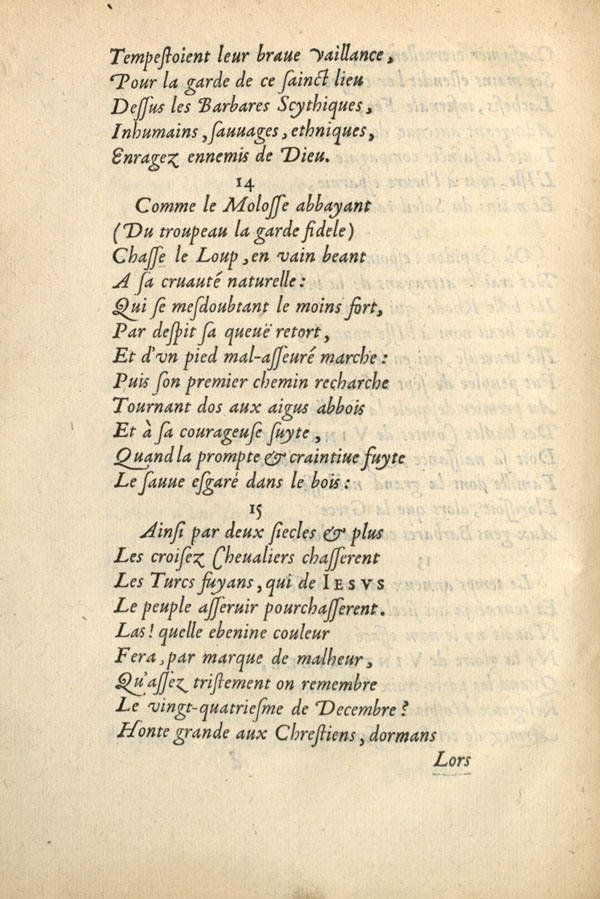 Tempeſtoient leur braue vaillance,
Pour la garde de ce ſainct lieu
Deſſus les Barbares Scythiques,
Inhumains, ſauuages, ethniques,
Enragez ennemis de Dieu.
14
Comme le Moloſſe abbayant
(Du troupeau la garde fidele)
Chaſſe le Loup, en vain beant
A ſa cruauté naturelle:
Qui ſe meſdoubtant le moins fort,
Par deſpit ſa queuë retort,
Et d'vn pied mal-aſſeuré marche:
Puis ſon premier chemin recharche
Tournant dos aux aigus abbois
Et à ſa courageuſe ſuyte,
Quand la prompte & craintiue fuyte
Le ſauue eſgaré dans le bois:
15
Ainſi par deux ſiecles & plus
Les croiſez Cheualiers chaſſerent
Les Turcs fuyans, qui de IESVS
Le peuple aſſeruir pourchaſſerent.
Las! quelle ebenine couleur
Fera, par marque de malheur,
Qu'aſſez triſtement on remembre
Le vingt-quatrieſme de Decembre?
Honte grande aux Chreſtiens, dormans
Lors